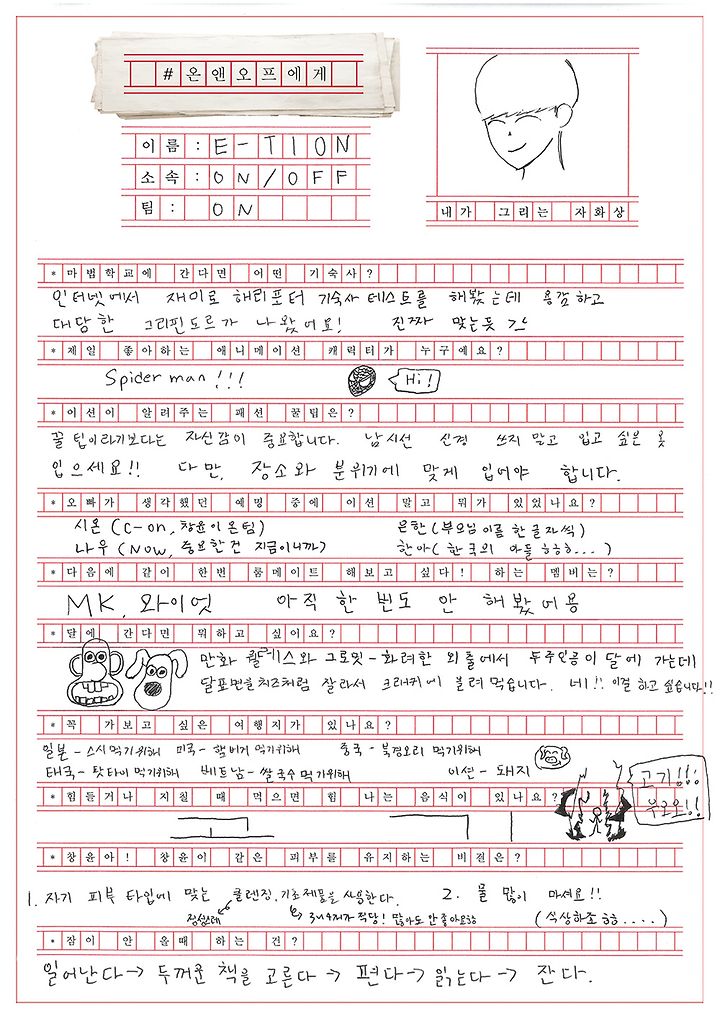 #온앤오프에게
이름 : E-TION
소속 : ON/OFF
팀 : ON
내가 그리는 자화상
* 마법학교에 간다면 어떤 기숙사?
인터넷에서 재미로 해리포터 기숙사 테스트를 해봤는데 용감하고
대담한 그리핀도르가 나왔어요! 진짜 맞는듯
* 제일 좋아하는 애니메이션 캐릭터가 누구에요?
Spider man!!!
Hi!
* 이션이 알려주는 패션 꿀팁은?
꿀팁이라기보다는 자신감이 중요합니다. 남시선 신경 쓰지 말고 입고 싶은 옷
입으세요!! 다만, 장소와 분위기에 맞게 입어야 합니다.
* 오빠가 생각했던 예명 중에 이션 말고 뭐가 있었나요?
시온 (C-on, 창윤이 온팀) 은한 (부모님 이름 한 글자씩)
나우 (Now, 중요한건 지금이니까) 한아 (한국의 아들 ㅎㅎㅎ...)
* 다음에 같이 한번 룸메이트 해보고 싶다! 하는 멤버는?
MK, 와이엇 아직 한 번도 안 해봤어용
* 달에 간다면 뭐하고 싶이요?
만화 월레스와 그로밋 - 화려한 외출에서 두주인공이 달에 가는데
달표면을 치즈처럼 잘라서 크래커에 올려 먹습니다. 네!! 이걸 하고 싶습니다!!
* 꼭 가보고 싶은 여행지가 있나요?
일본 - 스시 먹기위해 미국 - 햄버거 먹기위해 중국 - 북경오리 먹기위해
태국 - 팟타이 먹기위해 베트남 - 쌀국수 먹기위해 이션 - 돼지
* 힘들거나 지칠 때 먹으면 힘 나는 음식이 있나요?
고기!!!
우오오!!
* 창윤아! 창윤이 같은 피부를 유지하는 비결은?
1. 자기 피부 타입에 맞는 클렌징, 기초제품을 사용한다. 2. 물 많이 마셔요!!
3~4가지가 적당! 많아도 안 좋아요ㅎㅎ (식상하죠 ㅎㅎ....)
* 잠이 안 올때 하는 건?
일어난다 → 두꺼운 책을 고른다 → 편다 → 읽는다 → 잔다.